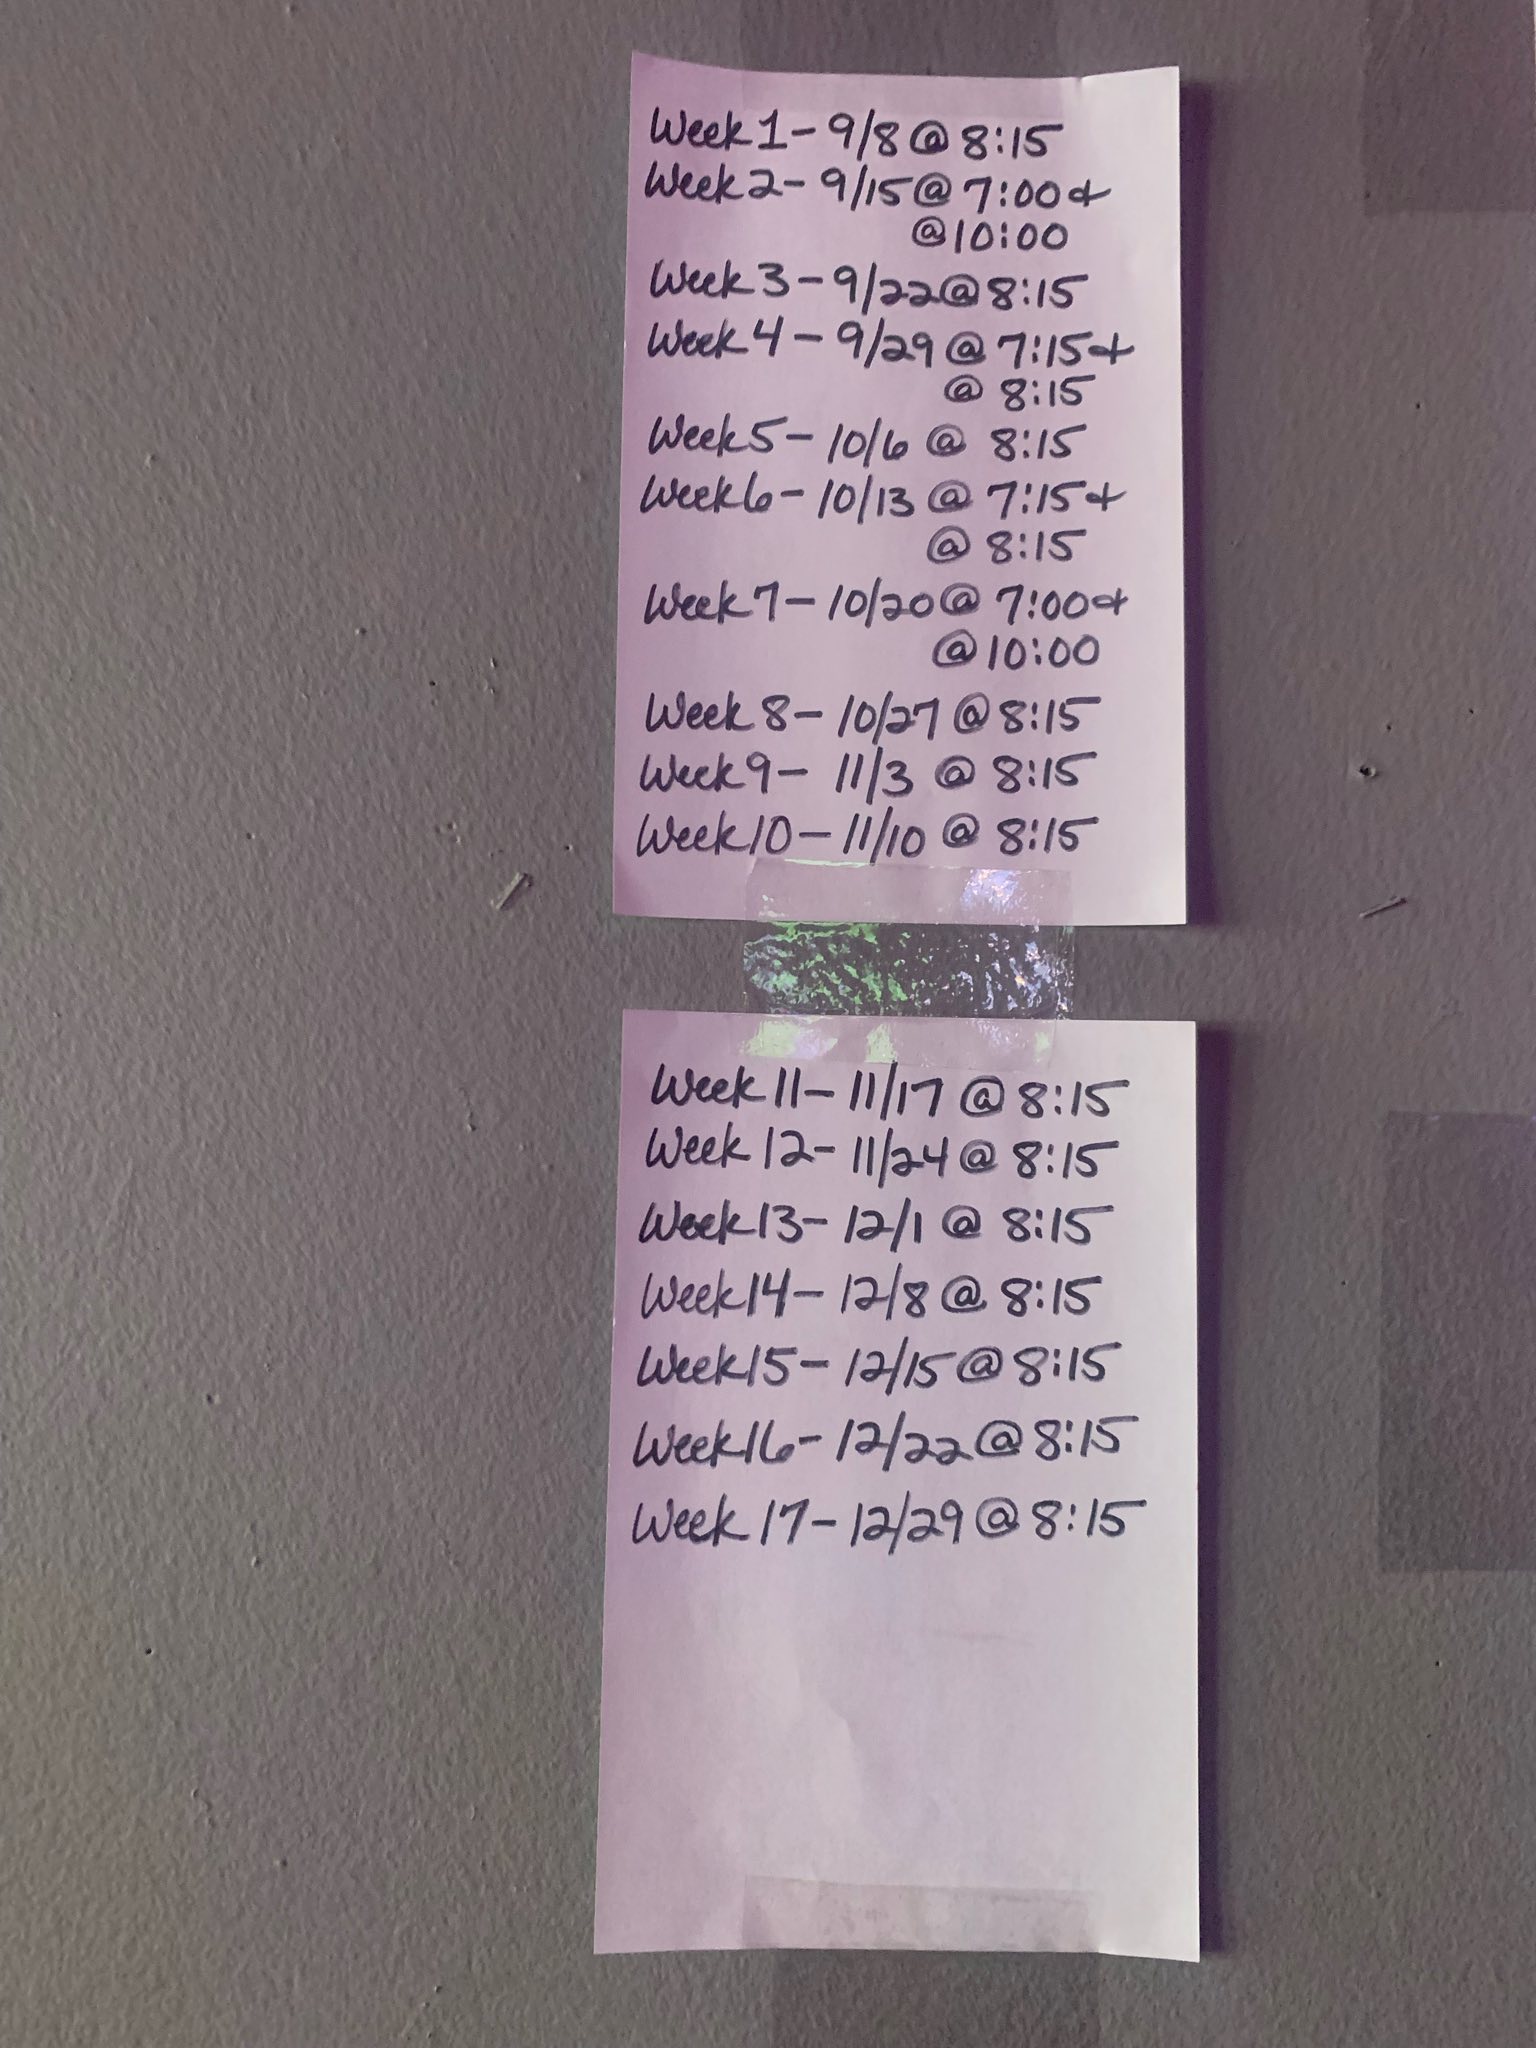 Week 1 - 9/8 @ 8:15
Week 2 - 9/15 @ 7:00 &
@ 10:00
Week 3 - 9/22 @ 8:15
Week 4 - 9/29 @ 7:15 &
@ 8:15
Week 5 - 10/6 @ 8:15
Week 6 - 10/13 @ 7:15 &
@ 8:15
Week 7 - 10/20 @ 7:00 &
@ 10:00
Week 8 - 10/27 @ 8:15
Week 9 - 11/3 @ 8:15
Week 10 - 11/10 @ 8:15
Week 11 - 11/17 @ 8:15
Week 12 - 11/24 @ 8:15
Week 13 - 12/1 @ 8:15
Week 14 - 12/8 @ 8:15
Week 15 - 12/15 @ 8:15
Week 16 - 12/22 @ 8:15
Week 17 - 12/29 @ 8:15